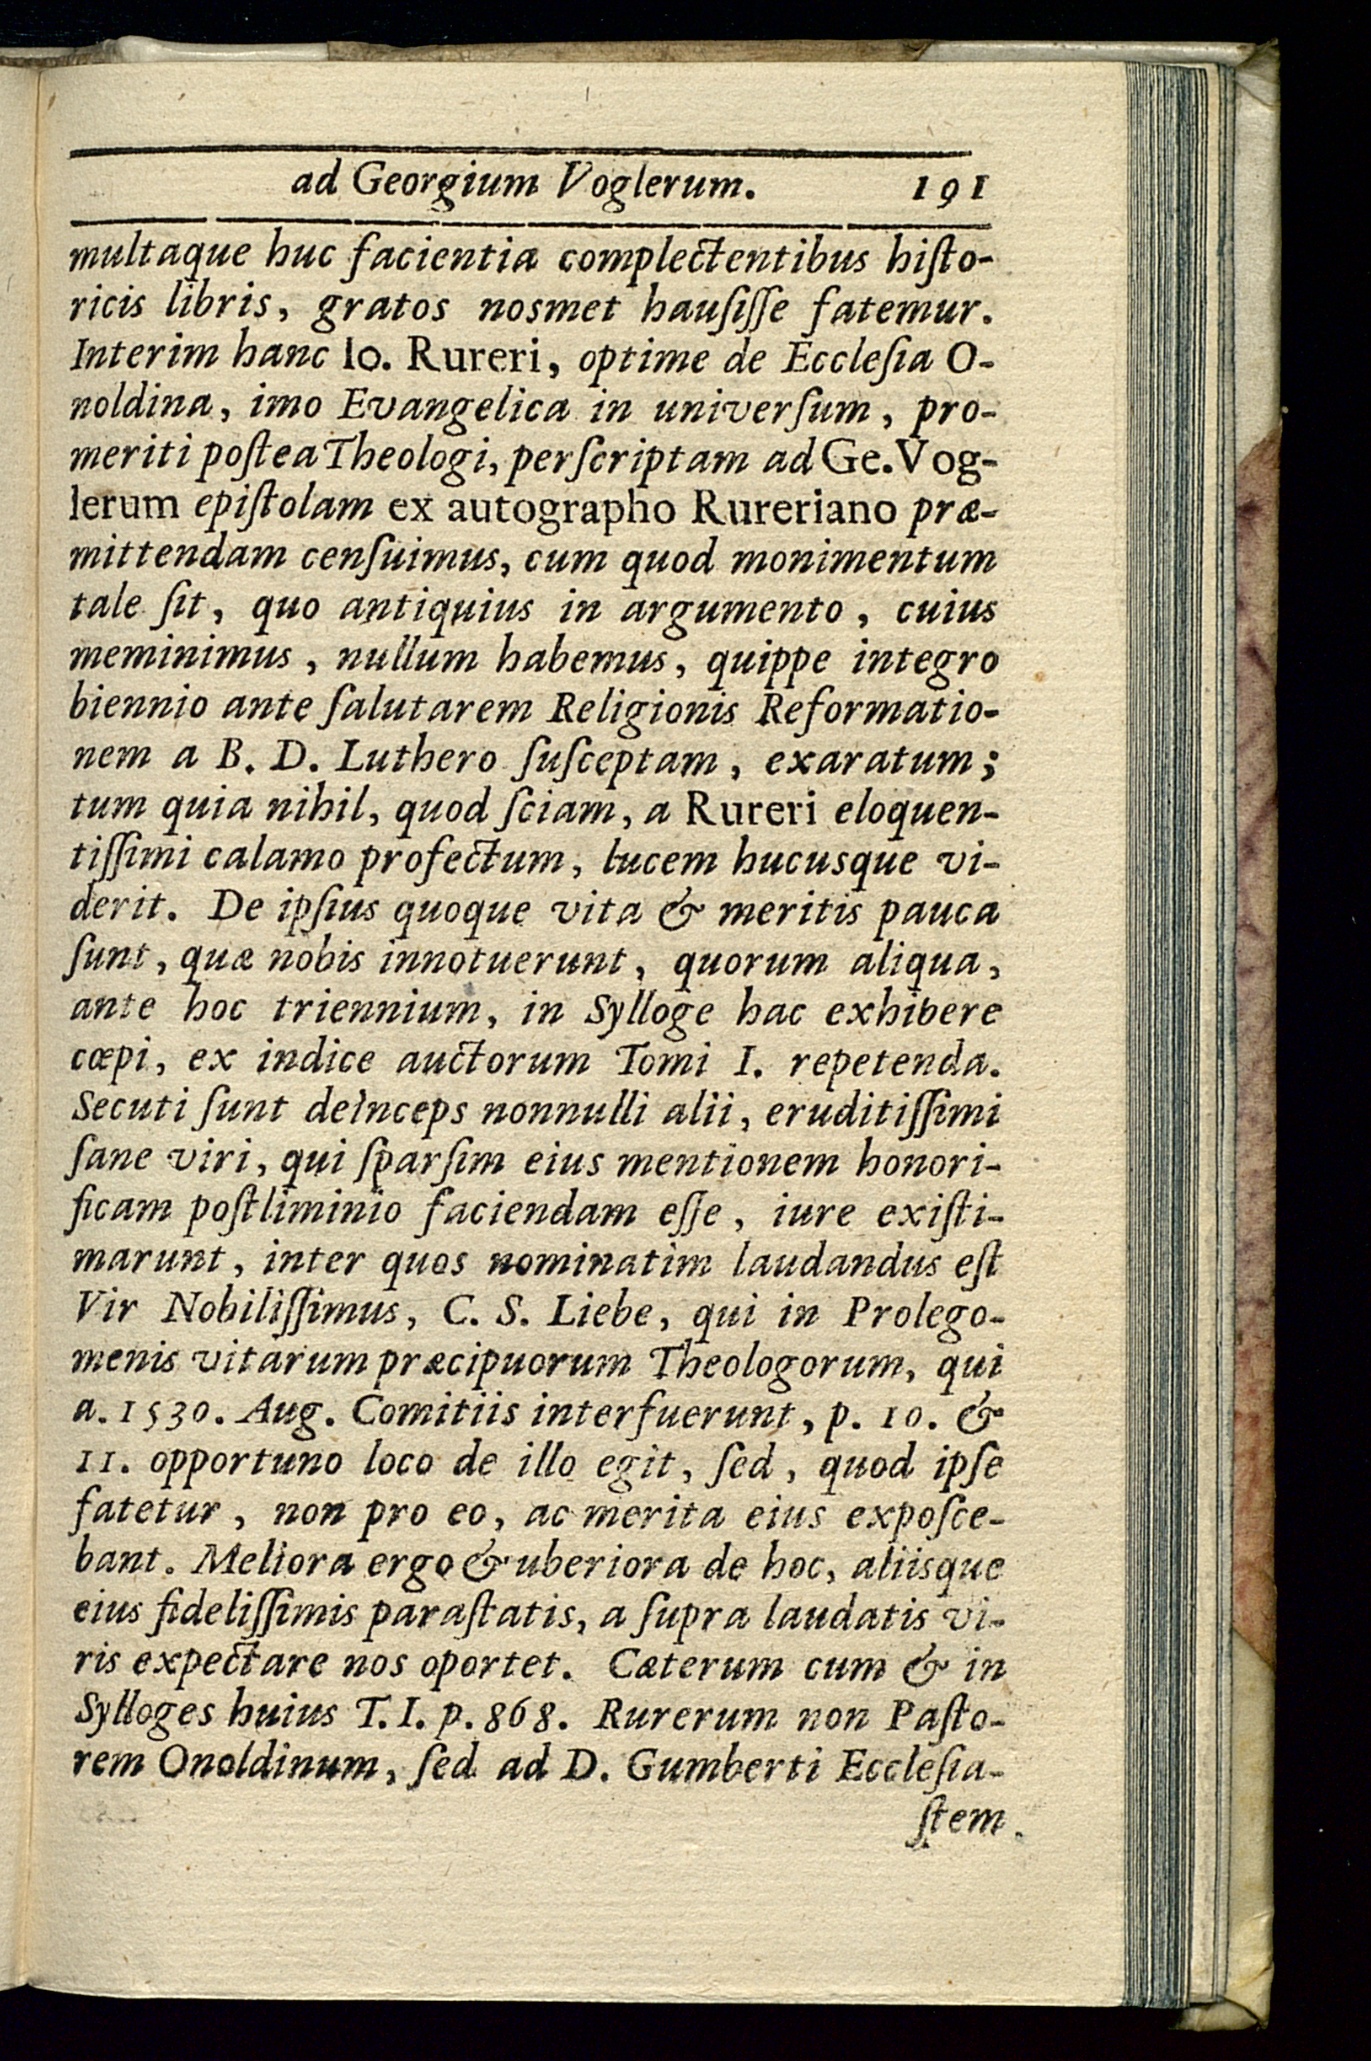 ad Georgium Voglerum. 191
multaque huc facientia complectentibus hiſto-
ricis libris, gratos nosmet hauſiſſe fatemur.
Interim hanc Io. Rureri, optime de Eccleſia O-
noldina, imo Evangelica in univerſum, pro-
meriti poſtea Theologi, perſcriptam ad Ge. Vog-
lerum epiſtolam ex autographo Rureriano præ-
mittendam cenſuimus, cum quod monimentum
tale ſit, quo antiquius in argumento, cuius
meminimus, nullum habemus, quippe integro
biennio ante ſalutarem Religionis Reformatio-
nem a B. D. Luthero ſuſceptam, exaratum;
tum quia nihil, quod ſciam, a Rureri eloquen-
tiſſimi calamo profectum, lucem hucusque vi-
derit. De ipſius quoque vita & meritis pauca
ſunt, quæ nobis innotuerunt, quorum aliqua,
ante hoc triennium, in Sylloge hac exhibere
cœpi, ex indice auctorum Tomi I. repetenda.
Secuti ſunt deinceps nonnulli alii, eruditiſſimi
ſane viri, qui ſparſim eius mentionem honori-
ficam poſtliminio faciendam eſſe, iure exiſti-
marunt, inter quos nominatim laudandus eſt
Vir Nobiliſſimus, C. S. Liebe, qui in Prolego-
menis vitarum præcipuorum Theologorum, qui
a. 1530. Aug. Comitiis interfuerunt, p. 10. &
11. opportuno loco de illo egit, ſed, quod ipſe
fatetur, non pro eo, ac merita eius expoſce-
bant. Meliora ergo & uberiora de hoc, aliisque
eius fideliſſimis paraſtatis, a ſupra laudatis vi-
ris expectare nos oportet. Cæterum cum & in
Sylloges huius T. I. p. 868. Rurerum non Paſto-
rem Onoldinum, ſed ad D. Gumberti Eccleſia-
ſtem